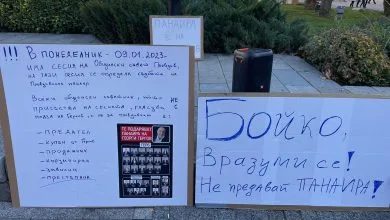 ПАНАИРА
Е НА
!!! В ПОНЕДЕЛНИК - 09.01.2023г.
ИМА СЕСИЯ НА Общински съвет Пловдив,
НА тази сесия се определя съдбата на
Пловдивския панаир
Всеки общински съветник, който НЕ
присъства на сесията, гласува
е:
- ПРЕДАТЕЛ
- КУПЕН
- ПРОДАЖНИК
- ПРЕСТЪПНИК
ТЕ ПОДАРЯВАТ
ПАНАИРА НА
ГЕОРГИ ГЕРГОВ!
Бойко,
Вразуми се!
Не предавай ПАНАИРА!